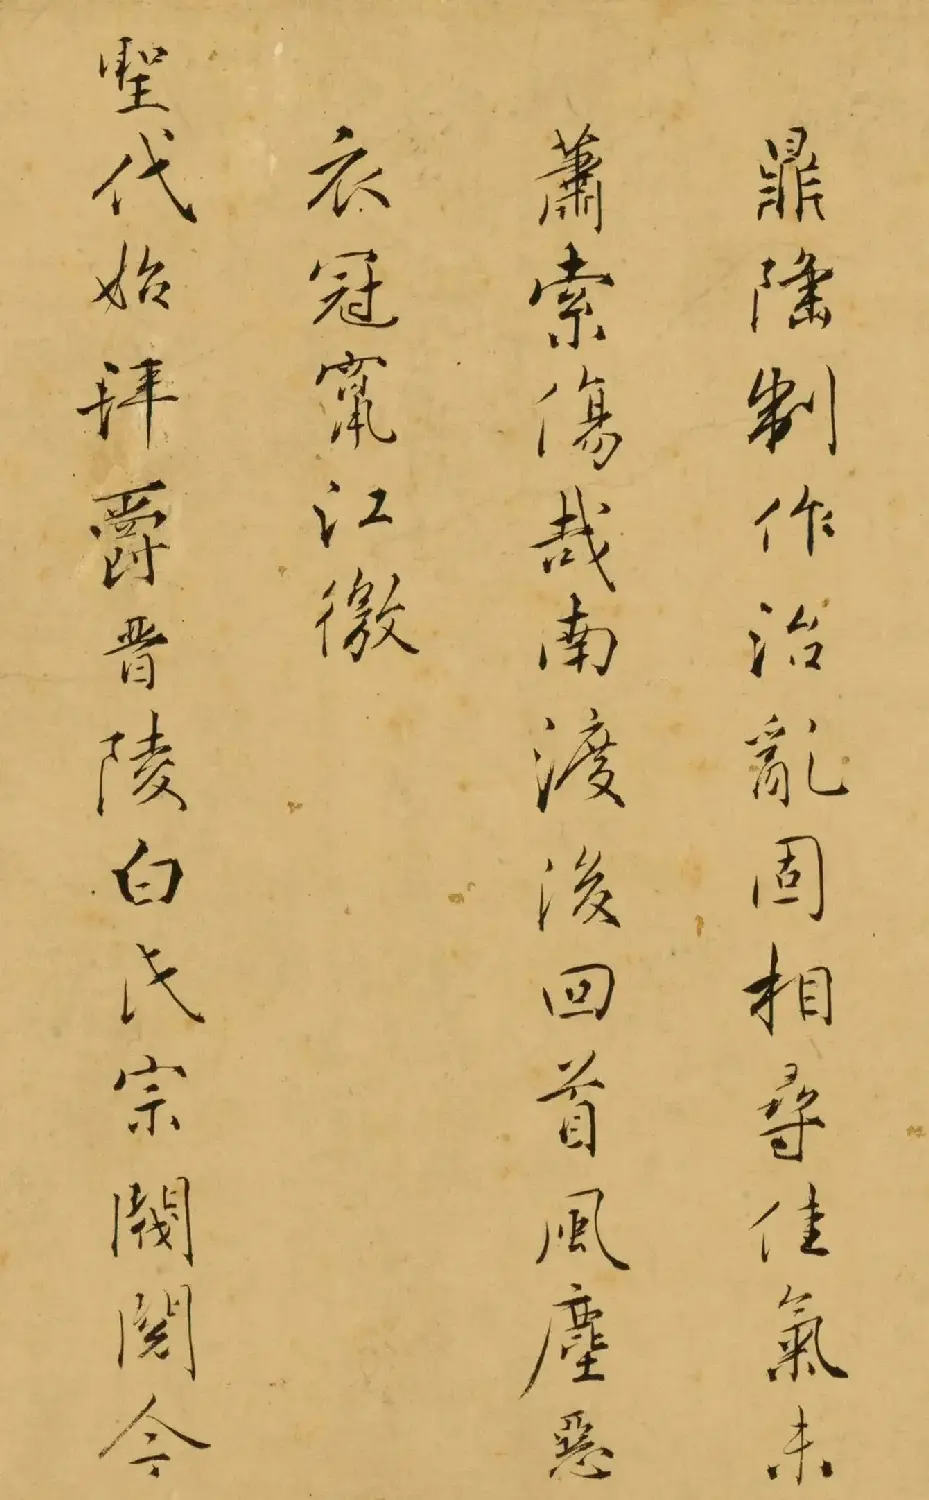 鼎隆制作治亂固相尋佳氣未
蕭索傷哉南渡後回首風塵惡
衣冠竄江徼
聖代始拜爵晉陵白氏宗閥閱今